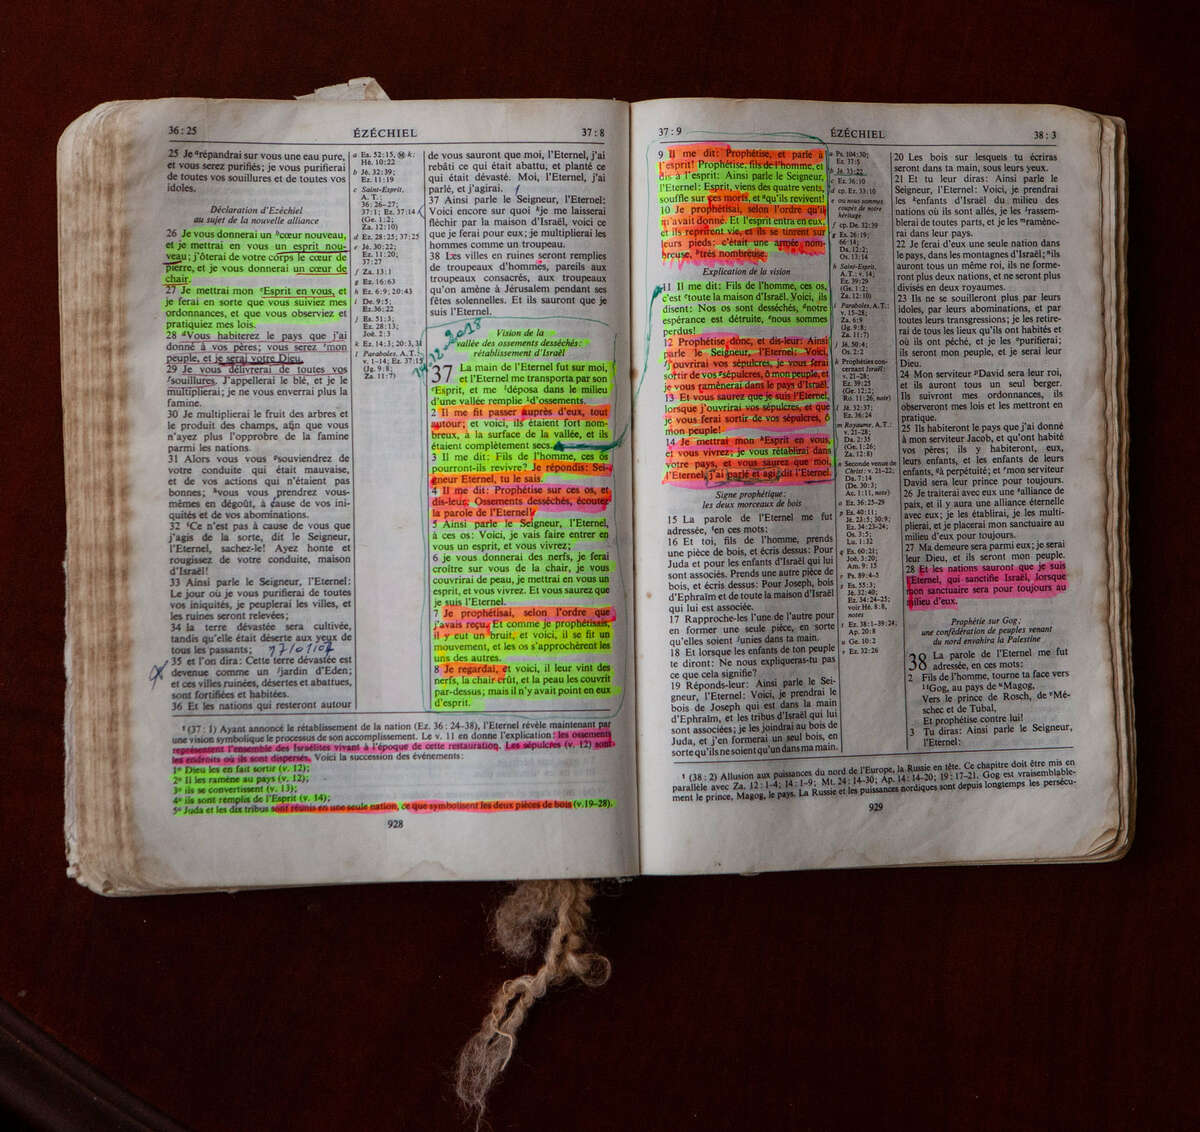 36 : 25
ÉZÉCHIEL
37 : 8
25 Je ᵃrépandrai sur vous une eau pure,
et vous serez purifiés; je vous purifierai
de toutes vos souillures et de toutes vos
idoles.
Déclaration d'Ezéchiel
au sujet de la nouvelle alliance
26 Je vous donnerai un ᵇcœur nouveau,
et je mettrai en vous un esprit nou-
veau; j'ôterai de votre corps le cœur de
pierre, et je vous donnerai un cœur de
chair.
27 Je mettrai mon ᶜEsprit en vous, et
je ferai en sorte que vous suiviez mes
ordonnances, et que vous observiez et
pratiquiez mes lois.
28 ᵈVous habiterez le pays que j'ai
donné à vos pères; vous serez ᵉmon
peuple, et je serai votre Dieu.
29 Je vous délivrerai de toutes vos
ᶠsouillures. J'appellerai le blé, et je le
multiplierai; je ne vous enverrai plus la
famine.
30 Je multiplierai le fruit des arbres et
le produit des champs, afin que vous
n'ayez plus l'opprobre de la famine
parmi les nations.
31 Alors vous vous ᵍsouviendrez de
votre conduite qui était mauvaise,
et de vos actions qui n'étaient pas
bonnes; ʰvous vous prendrez vous-
mêmes en dégoût, à cause de vos ini-
quités et de vos abominations.
32 ᶦCe n'est pas à cause de vous que
j'agis de la sorte, dit le Seigneur,
l'Eternel, sachez-le! Ayez honte et
rougissez de votre conduite, maison
d'Israël!
33 Ainsi parle le Seigneur, l'Eternel:
Le jour où je vous purifierai de toutes
vos iniquités, je peuplerai les villes, et
les ruines seront relevées;
34 la terre dévastée sera cultivée,
tandis qu'elle était déserte aux yeux de
tous les passants; 17/01/07
35 et l'on dira: Cette terre dévastée est
devenue comme un ʲjardin d'Eden;
et ces villes ruinées, désertes et abattues,
sont fortifiées et habitées.
36 Et les nations qui resteront autour
a Es. 52:15,
Hé. 10:22
b Jé. 32:39;
Ez. 11:19
c Saint-Esprit,
A. T.:
36: 26-27;
37:1; Ez. 37:14
(Ge. 1:2;
Za. 12:10)
d Ez. 28:25; 37:25
e Jé. 30:22;
Ez. 11:20;
37:27
f Za. 13:1
g Ez. 16:63
h Ez. 6:9; 20:43
i De. 9:5;
Ez. 36:22
j Es. 51:3;
Ez. 28:13;
Joë. 2:3
k Ez. 14:3; 20:3, 31
l Paraboles, A.T.:
v. 1-14; Ez. 37:15
(Jg. 9:8;
Za. 11:7)
de vous sauront que moi, l'Eternel, j'ai
rebâti ce qui était abattu, et planté ce
qui était dévasté. Moi, l'Eternel, j'ai
parlé, et j'agirai.
37 Ainsi parle le Seigneur, l'Eternel:
Voici encore sur quoi ᵏje me laisserai
fléchir par la maison d'Israël, voici ce
que je ferai pour eux; je multiplierai les
hommes comme un troupeau.
38 Les villes en ruines seront remplies
de troupeaux d'hommes, pareils aux
troupeaux consacrés, aux troupeaux
qu'on amène à Jérusalem pendant ses
fêtes solennelles. Et ils sauront que je
suis l'Eternel.
Vision de la
vallée des ossements desséchés:
rétablissement d'Israël
37 La main de l'Eternel fut sur moi,
et l'Eternel me transporta par son
ᶜEsprit, et me ˡdéposa dans le milieu
d'une vallée remplie ¹d'ossements.
2 Il me fit passer auprès d'eux, tout
autour; et voici, ils étaient fort nom-
breux, à la surface de la vallée, et ils
étaient complètement secs.
3 Il me dit: Fils de l'homme, ces os
pourront-ils revivre? Je répondis: Sei-
gneur Eternel, tu le sais.
4 Il me dit: Prophétise sur ces os, et
dis-leur: Ossements desséchés, écoutez
la parole de l'Eternel!
5 Ainsi parle le Seigneur, l'Eternel,
à ces os: Voici, je vais faire entrer en
vous un esprit, et vous vivrez;
6 je vous donnerai des nerfs, je ferai
croître sur vous de la chair, je vous
couvrirai de peau, je mettrai en vous un
esprit, et vous vivrez. Et vous saurez que
je suis l'Eternel.
7 Je prophétisai, selon l'ordre que
j'avais reçu. Et comme je prophétisais,
il y eut un bruit, et voici, il se fit un
mouvement, et les os s'approchèrent les
uns des autres.
8 Je regardai, et voici, il leur vint des
nerfs, la chair crût, et la peau les couvrit
par-dessus; mais il n'y avait point en eux
d'esprit.
¹ (37 : 1) Ayant annoncé le rétablissement de la nation (Ez. 36 : 24-38), l'Eternel révèle maintenant par
une vision symbolique le processus de son accomplissement. Le v. 11 en donne l'explication; les ossements
représentent l'ensemble des Israélites vivant à l'époque de cette restauration. Les sépulcres (v. 12) sont
les endroits où ils sont dispersés. Voici la succession des événements:
1º Dieu les en fait sortir (v. 12);
2º Il les ramène au pays (v. 12);
3º ils se convertissent (v. 13);
4º ils sont remplis de l'Esprit (v. 14);
5º Juda et les dix tribus sont réunis en une seule nation, ce que symbolisent les deux pièces de bois (v. 19-28).
928
37 : 9
ÉZÉCHIEL
38 : 3
9 Il me dit: Prophétise, et parle à
l'esprit! Prophétise, fils de l'homme, et
dis à l'esprit: Ainsi parle le Seigneur,
l'Eternel: Esprit, viens des quatre vents,
souffle sur ces morts, et ᵃqu'ils revivent!
10 Je prophétisai, selon l'ordre qu'il
m'avait donné. Et l'esprit entra en eux,
et ils reprirent vie, et ils se tinrent sur
leurs pieds: c'était une armée nom-
breuse, très nombreuse.
Explication de la vision
11 Il me dit: Fils de l'homme, ces os,
c'est ᶜtoute la maison d'Israël. Voici, ils
disent: Nos os sont desséchés, ᵈnotre
espérance est détruite, ᵉnous sommes
perdus!
12 Prophétise donc, et dis-leur: Ainsi
parle le Seigneur, l'Eternel: Voici,
j'ouvrirai vos sépulcres, je vous ferai
sortir de vos ᵍsépulcres, ô mon peuple, et
je vous ramènerai dans le pays d'Israël.
13 Et vous saurez que je suis l'Eternel,
lorsque j'ouvrirai vos sépulcres, et que
je vous ferai sortir de vos sépulcres, ô
mon peuple!
14 Je mettrai mon ʰEsprit en vous,
et vous vivrez; je vous rétablirai dans
votre pays, et vous saurez que moi,
l'Eternel, j'ai parlé et agi, dit l'Eternel.
Signe prophétique:
les deux morceaux de bois
15 La parole de l'Eternel me fut
adressée, ⁱen ces mots:
16 Et toi, fils de l'homme, prends
une pièce de bois, et écris dessus: Pour
Juda et pour les enfants d'Israël qui lui
sont associés. Prends une autre pièce de
bois, et écris dessus: Pour Joseph, bois
d'Ephraïm et de toute la maison d'Israël
qui lui est associée.
17 Rapproche-les l'une de l'autre pour
en former une seule pièce, en sorte
qu'elles soient ʲunies dans ta main.
18 Et lorsque les enfants de ton peuple
te diront: Ne nous expliqueras-tu pas
ce que cela signifie?
19 Réponds-leur: Ainsi parle le Sei-
gneur, l'Eternel: Voici, je prendrai le
bois de Joseph qui est dans la main
d'Ephraïm, et les tribus d'Israël qui lui
sont associées; je les joindrai au bois de
Juda, et j'en formerai un seul bois, en
sorte qu'ils ne soient qu'un dans ma main.
a Ps. 104:30;
Ez. 37:5
b Jé. 33:22
c Ez. 36:10
d cp. Ez. 33:10
e ou nous sommes
coupés de notre
héritage
f cp. Da. 32:39
g Es. 26:19;
66:14;
Da. 12:2;
Os. 13:14
h Saint-Esprit,
A.T.: v. 14;
Ez. 39:29
(Ge. 1:2;
Za. 12:10)
i Paraboles, A.T.:
v. 15-28;
Za. 6:9
(Jg. 9:8;
Za. 11:7)
j Jé. 50:4;
Os. 2:2
k Prophéties con-
cernant Israël:
v. 21-28;
Ez. 39:25
(Ge. 12:2;
Ro. 11:26, note)
l Jé. 32:37;
Ez. 36:24
m Royaume, A.T.:
v. 21-28;
Da. 2:35
(Ge. 1:26;
Za. 12:8)
n Seconde venue de
Christ: v. 21-22;
Da. 7:14
(De. 30:3;
Ac. 1:11, note)
o Ez. 36:25-29
p Es. 40:11;
Jé. 23:5; 30:9;
Ez. 34:23-24;
Os. 3:5;
Lu. 1:32
q Es. 60:21;
Joë. 3:20;
Am. 9:15
r Ps. 89:4-5
s Es. 55:3;
Jé. 32:40;
Ez. 34:24-25;
voir Hé. 8:8,
notes
t Ez. 38:1-39:24;
Ap. 20:8
u Ge. 10:2
v Ez. 32:26
20 Les bois sur lesquels tu écriras
seront dans ta main, sous leurs yeux.
21 Et tu leur diras: Ainsi parle le
Seigneur, l'Eternel: Voici, je prendrai
les ᵏenfants d'Israël du milieu des
nations où ils sont allés, je les ˡrassem-
blerai de toutes parts, et je les ᵐramène-
rai dans leur pays.
22 Je ferai d'eux une seule nation dans
le pays, dans les montagnes d'Israël; ⁿils
auront tous un même roi, ils ne forme-
ront plus deux nations, et ne seront plus
divisés en deux royaumes.
23 Ils ne se souilleront plus par leurs
idoles, par leurs abominations, et par
toutes leurs transgressions; je les retire-
rai de tous les lieux qu'ils ont habités et
où ils ont péché, et je les ᵒpurifierai;
ils seront mon peuple, et je serai leur
Dieu.
24 Mon serviteur ᵖDavid sera leur roi,
et ils auront tous un seul berger.
Ils suivront mes ordonnances, ils
observeront mes lois et les mettront en
pratique.
25 Ils habiteront le pays que j'ai donné
à mon serviteur Jacob, et qu'ont habité
vos pères; ils y habiteront, eux,
leurs enfants, et les enfants de leurs
enfants, à perpétuité; et ʳmon serviteur
David sera leur prince pour toujours.
26 Je traiterai avec eux une ˢalliance de
paix, et il y aura une alliance éternelle
avec eux; je les établirai, je les multi-
plierai, et je placerai mon sanctuaire au
milieu d'eux pour toujours.
27 Ma demeure sera parmi eux; je serai
leur Dieu, et ils seront mon peuple.
28 Et les nations sauront que je suis
l'Eternel, qui sanctifie Israël, lorsque
mon sanctuaire sera pour toujours au
milieu d'eux.
Prophétie sur Gog;
une confédération de peuples venant
du nord envahira la Palestine
38 La parole de l'Eternel me fut
adressée, en ces mots:
2 Fils de l'homme, tourne ta face vers
¹ᵗGog, au pays de ᵘMagog,
Vers le prince de Rosch, de ᵛMé-
schec et de Tubal,
Et prophétise contre lui!
3 Tu diras: Ainsi parle le Seigneur,
l'Eternel:
¹ (38 : 2) Allusion aux puissances du nord de l'Europe, la Russie en tête. Ce chapitre doit être mis en
parallèle avec Za. 12:1-4; 14:1-9; Mt. 24:14-30; Ap. 14:14-20; 19:17-21. Gog est vraisemblable-
ment le prince, Magog, le pays. La Russie et les puissances nordiques sont depuis longtemps les persécu-
929